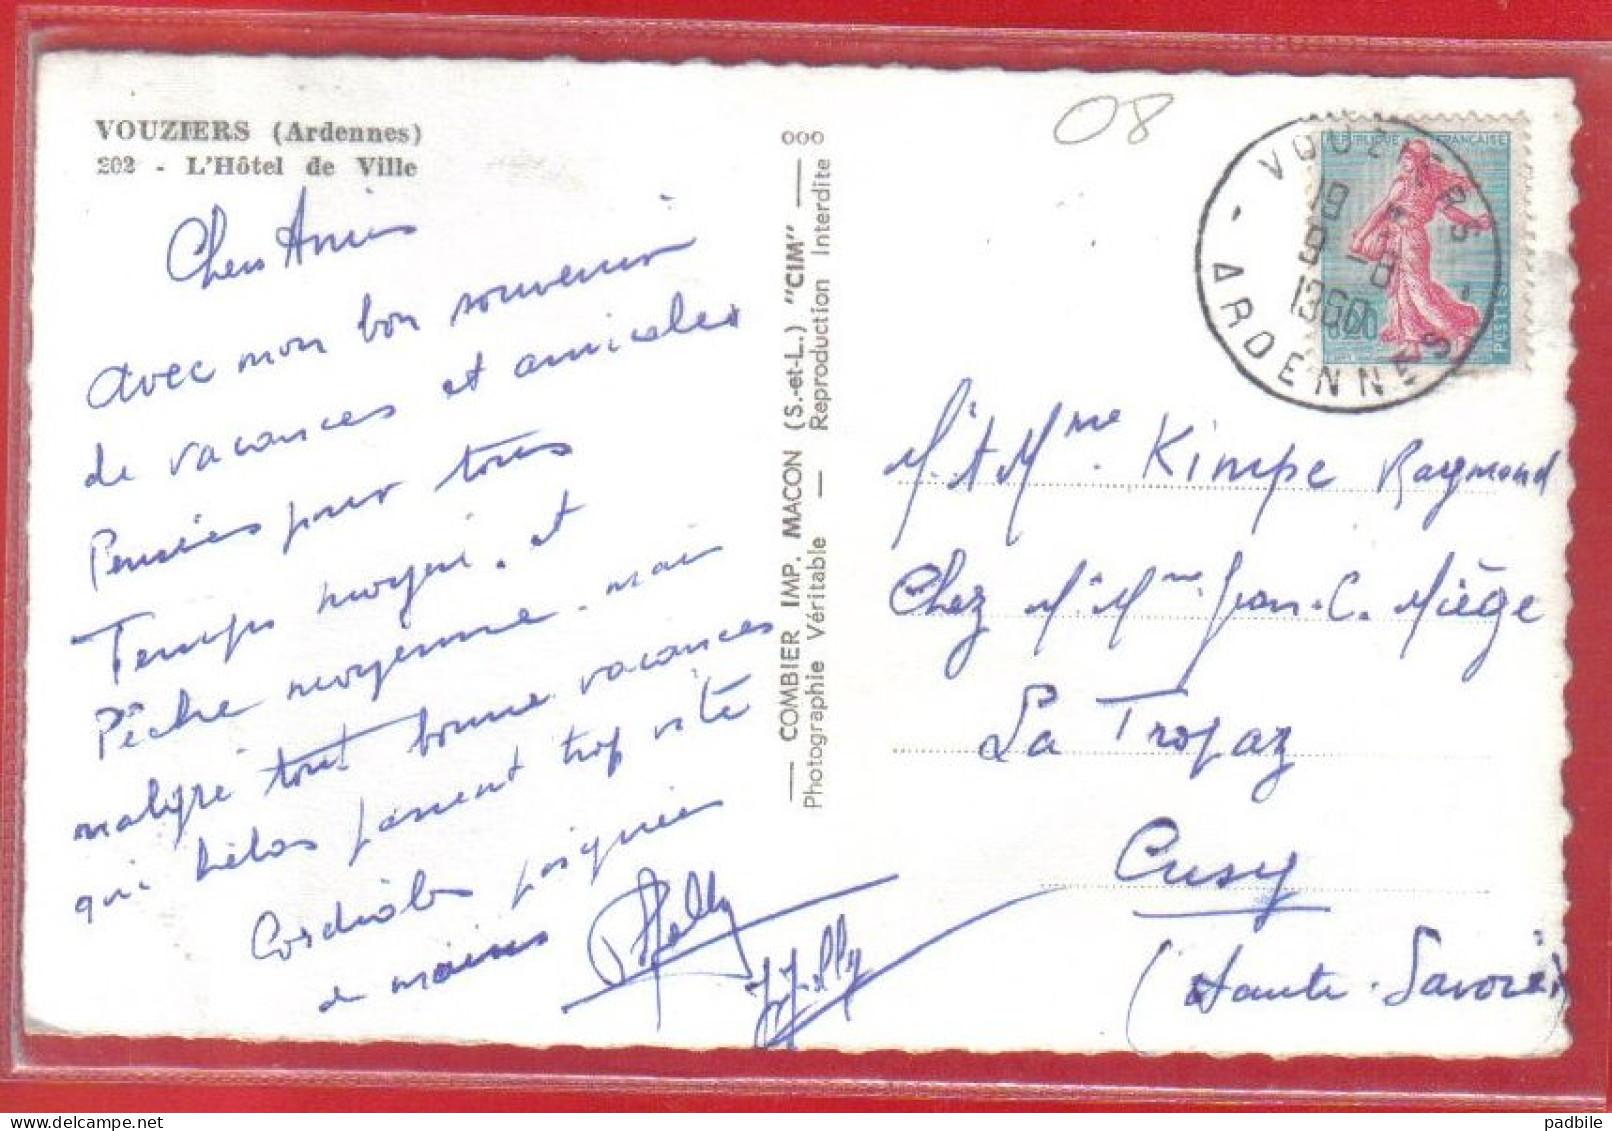 VOUZIERS (Ardennes)
202 - L'Hôtel de Ville
Chers Amis
avec mon bon souvenir
de vacances et amicales
Pensées pour tous
Temps moyen. et
Pêche moyenne. mais
malgré tout bonne vacances
qui hélas passent trop vite
Cordiales poignées
de mains
COMBIER IMP. MACON (S.-et-L.) "CIM"
Photographie Véritable — Reproduction Interdite
ooo
08
VOUZIERS
19
9 - 8
1960
ARDENNES
REPUBLIQUE FRANÇAISE
0,20
POSTES
M. et Mme. Kimpe Raymond
Chez Mr Mme Jean. C. Miège
La Tropaz
Cusy
(Haute-Savoie)
padbile